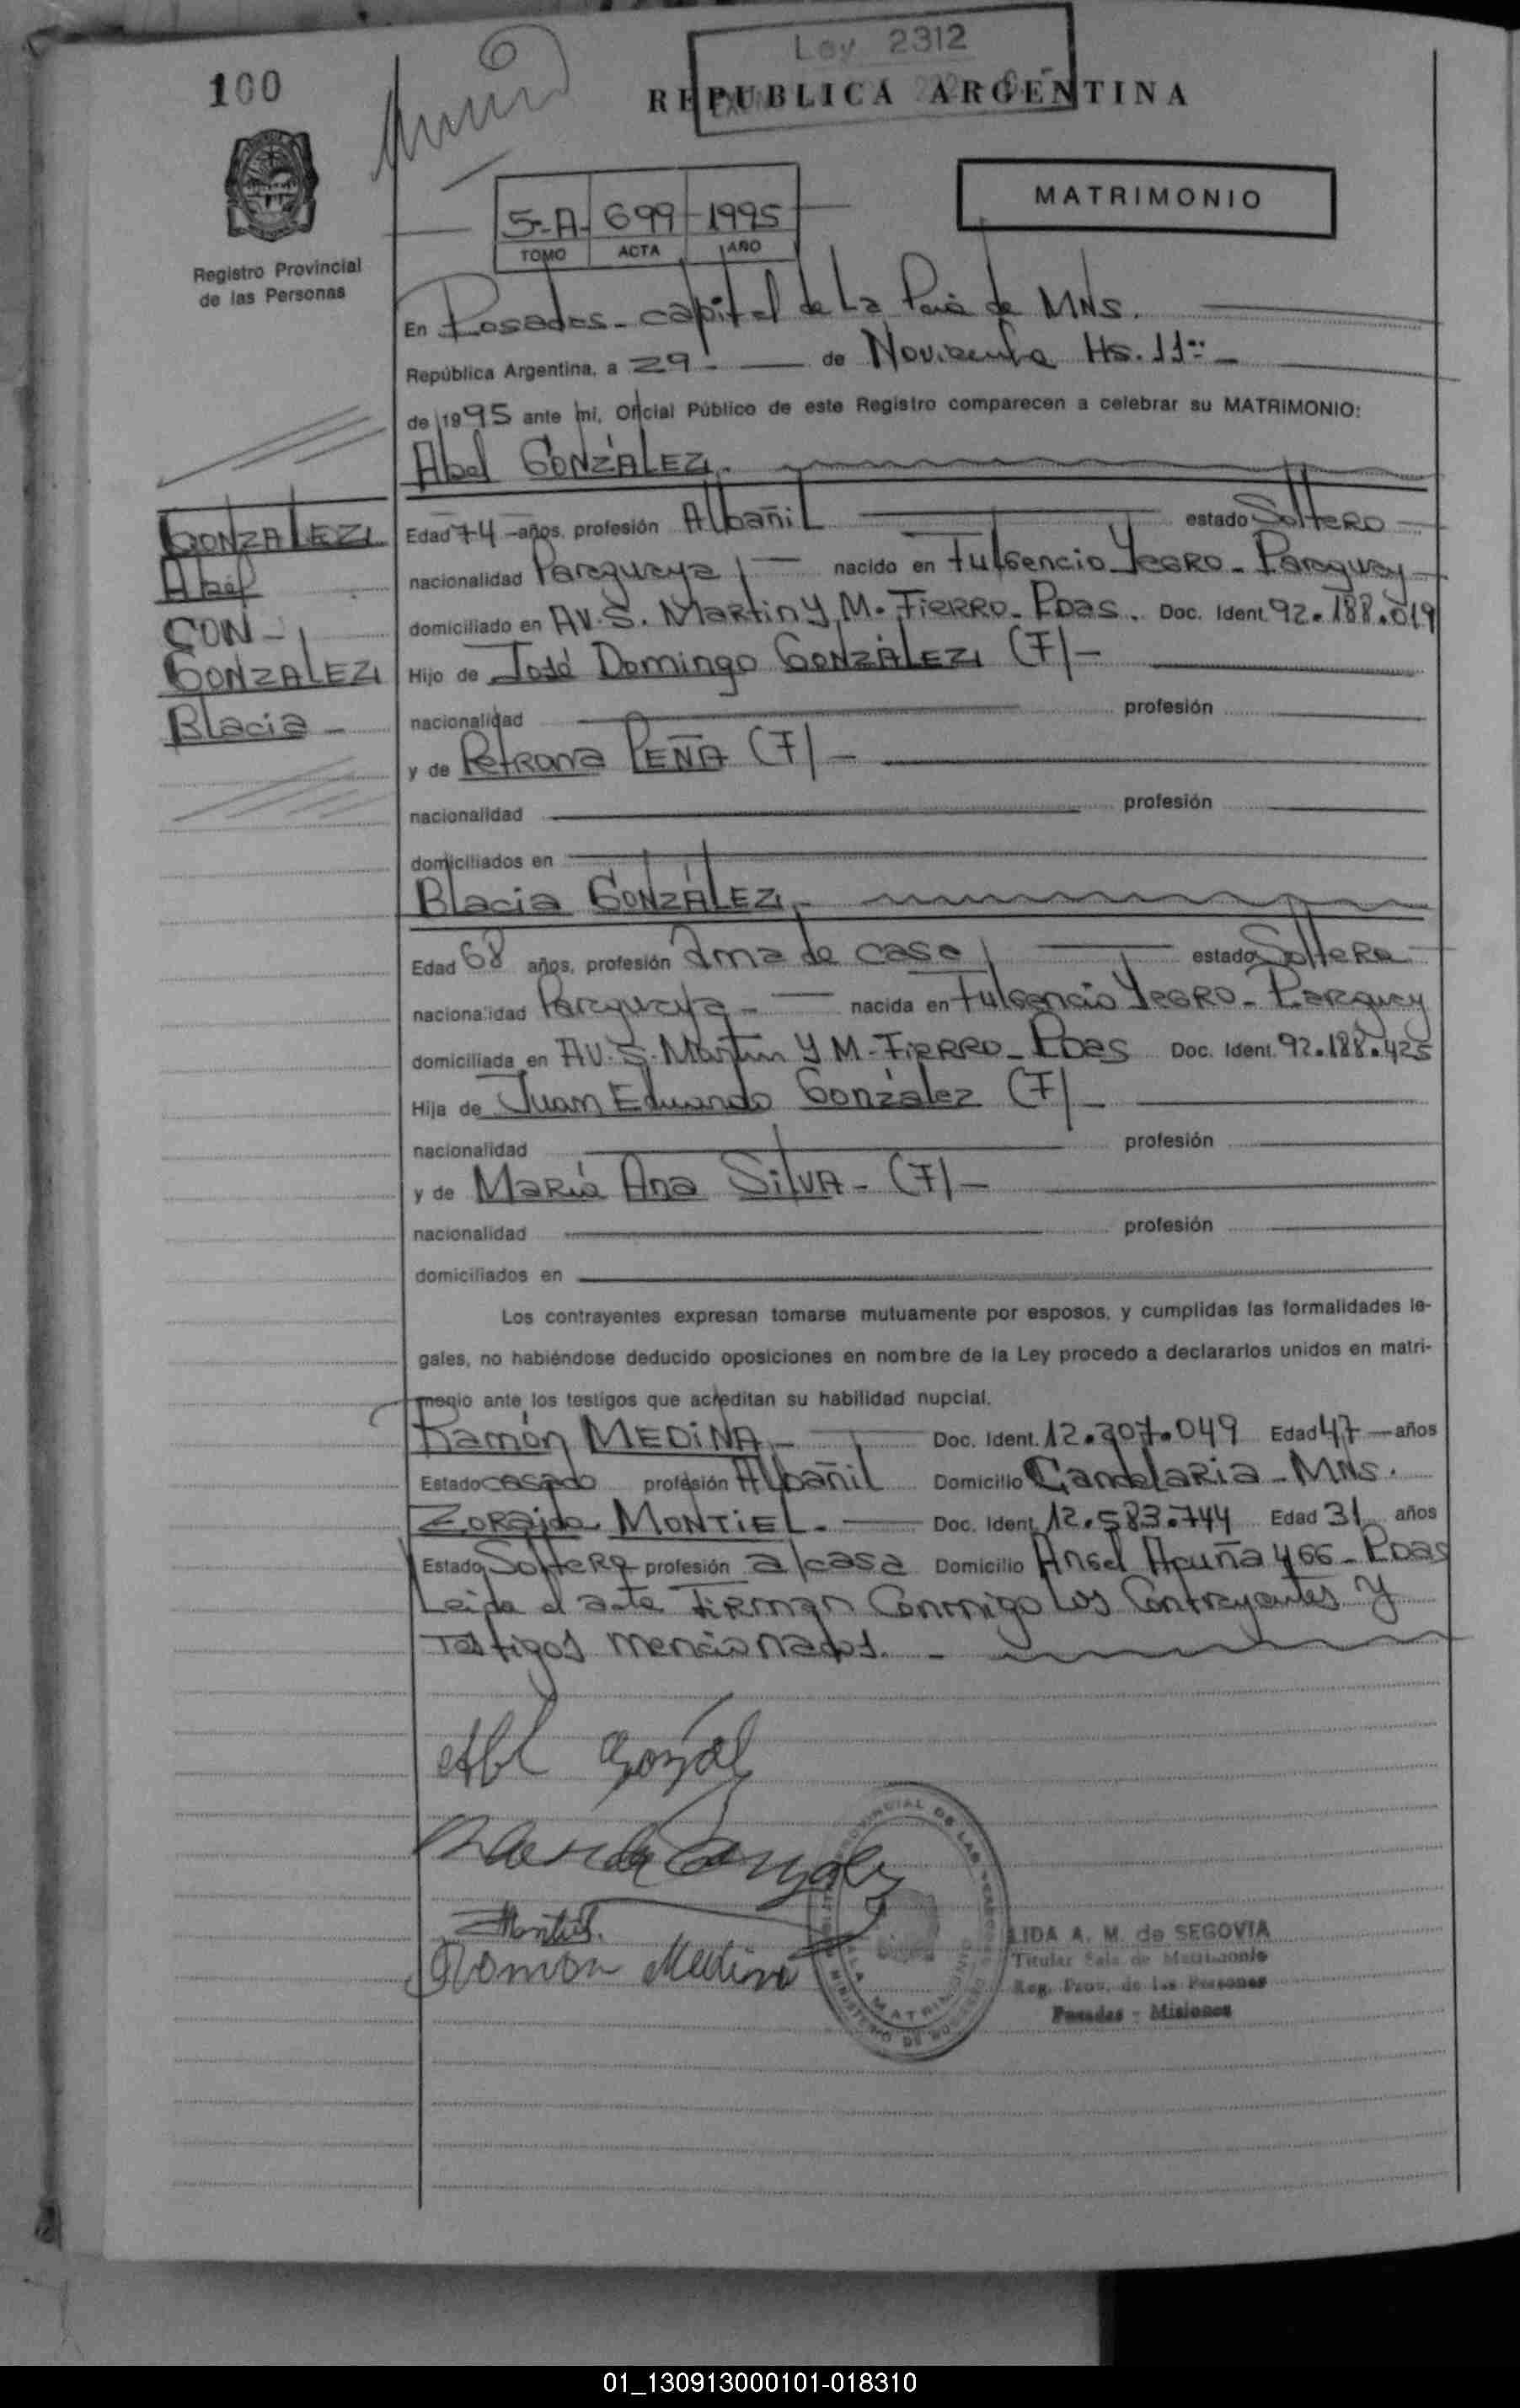 100
Ley 2312
REPUBLICA ARGENTINA
MATRIMONIO
5-A- 699 1995
TOMO ACTA AÑO
Registro Provincial
de las Personas
En Posadas - capital de La Pcia de MNS.
República Argentina, a 29 - de Noviembre Hs. 11
de 1995 ante mi, Oficial Público de este Registro comparecen a celebrar su MATRIMONIO:
Abel GONZÁLEZ
GONZALEZ
Abel
CON -
GONZALEZ
Blacia -
Edad 74 años, profesión Albañil estado Soltero
nacionalidad Paraguaya nacido en Fulgencio Yegro - Paraguay
domiciliado en AV. S. Martin y M. FIERRO - Pdas. Doc. Ident. 92.188.019
Hijo de José Domingo GONZÁLEZ (F) -
nacionalidad profesión
y de Petrona PEÑA (F) -
nacionalidad profesión
domiciliados en
Blacia GONZÁLEZ
Edad 68 años, profesión Ama de casa estado Soltera
nacionalidad Paraguaya - nacida en Fulgencio Yegro - Paraguay
domiciliada en AV. S. Martin y M. FIERRO - Pdas Doc. Ident. 92.188.425
Hija de Juan Eduardo González (F) -
nacionalidad profesión
y de María Ana SILVA - (F) -
nacionalidad profesión
domiciliados en
Los contrayentes expresan tomarse mutuamente por esposos, y cumplidas las formalidades le-
gales, no habiéndose deducido oposiciones en nombre de la Ley procedo a declararlos unidos en matri-
monio ante los testigos que acreditan su habilidad nupcial.
Ramón MEDINA - Doc. Ident. 12.207.049 Edad 47 años
Estado casado profesión Albañil Domicilio Candelaria - MNS.
Zoraida MONTIEL - Doc. Ident. 12.583.744 Edad 31 años
Estado Soltera profesión a/casa Domicilio Angel Acuña 466 - Pdas
Leida el acta Firman Conmigo Los Contrayentes y
Testigos mencionados. -
Abl Gonzal
Gonzalez
Montiel
Ramon Medina
LIDA A. M. de SEGOVIA
Titular Sala de Matrimonio
Reg. Prov. de las Personas
Posadas - Misiones
01_130913000101-018310